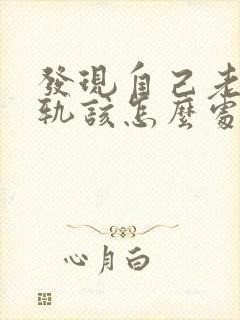 發現自己老
軌該怎麼處
心月白